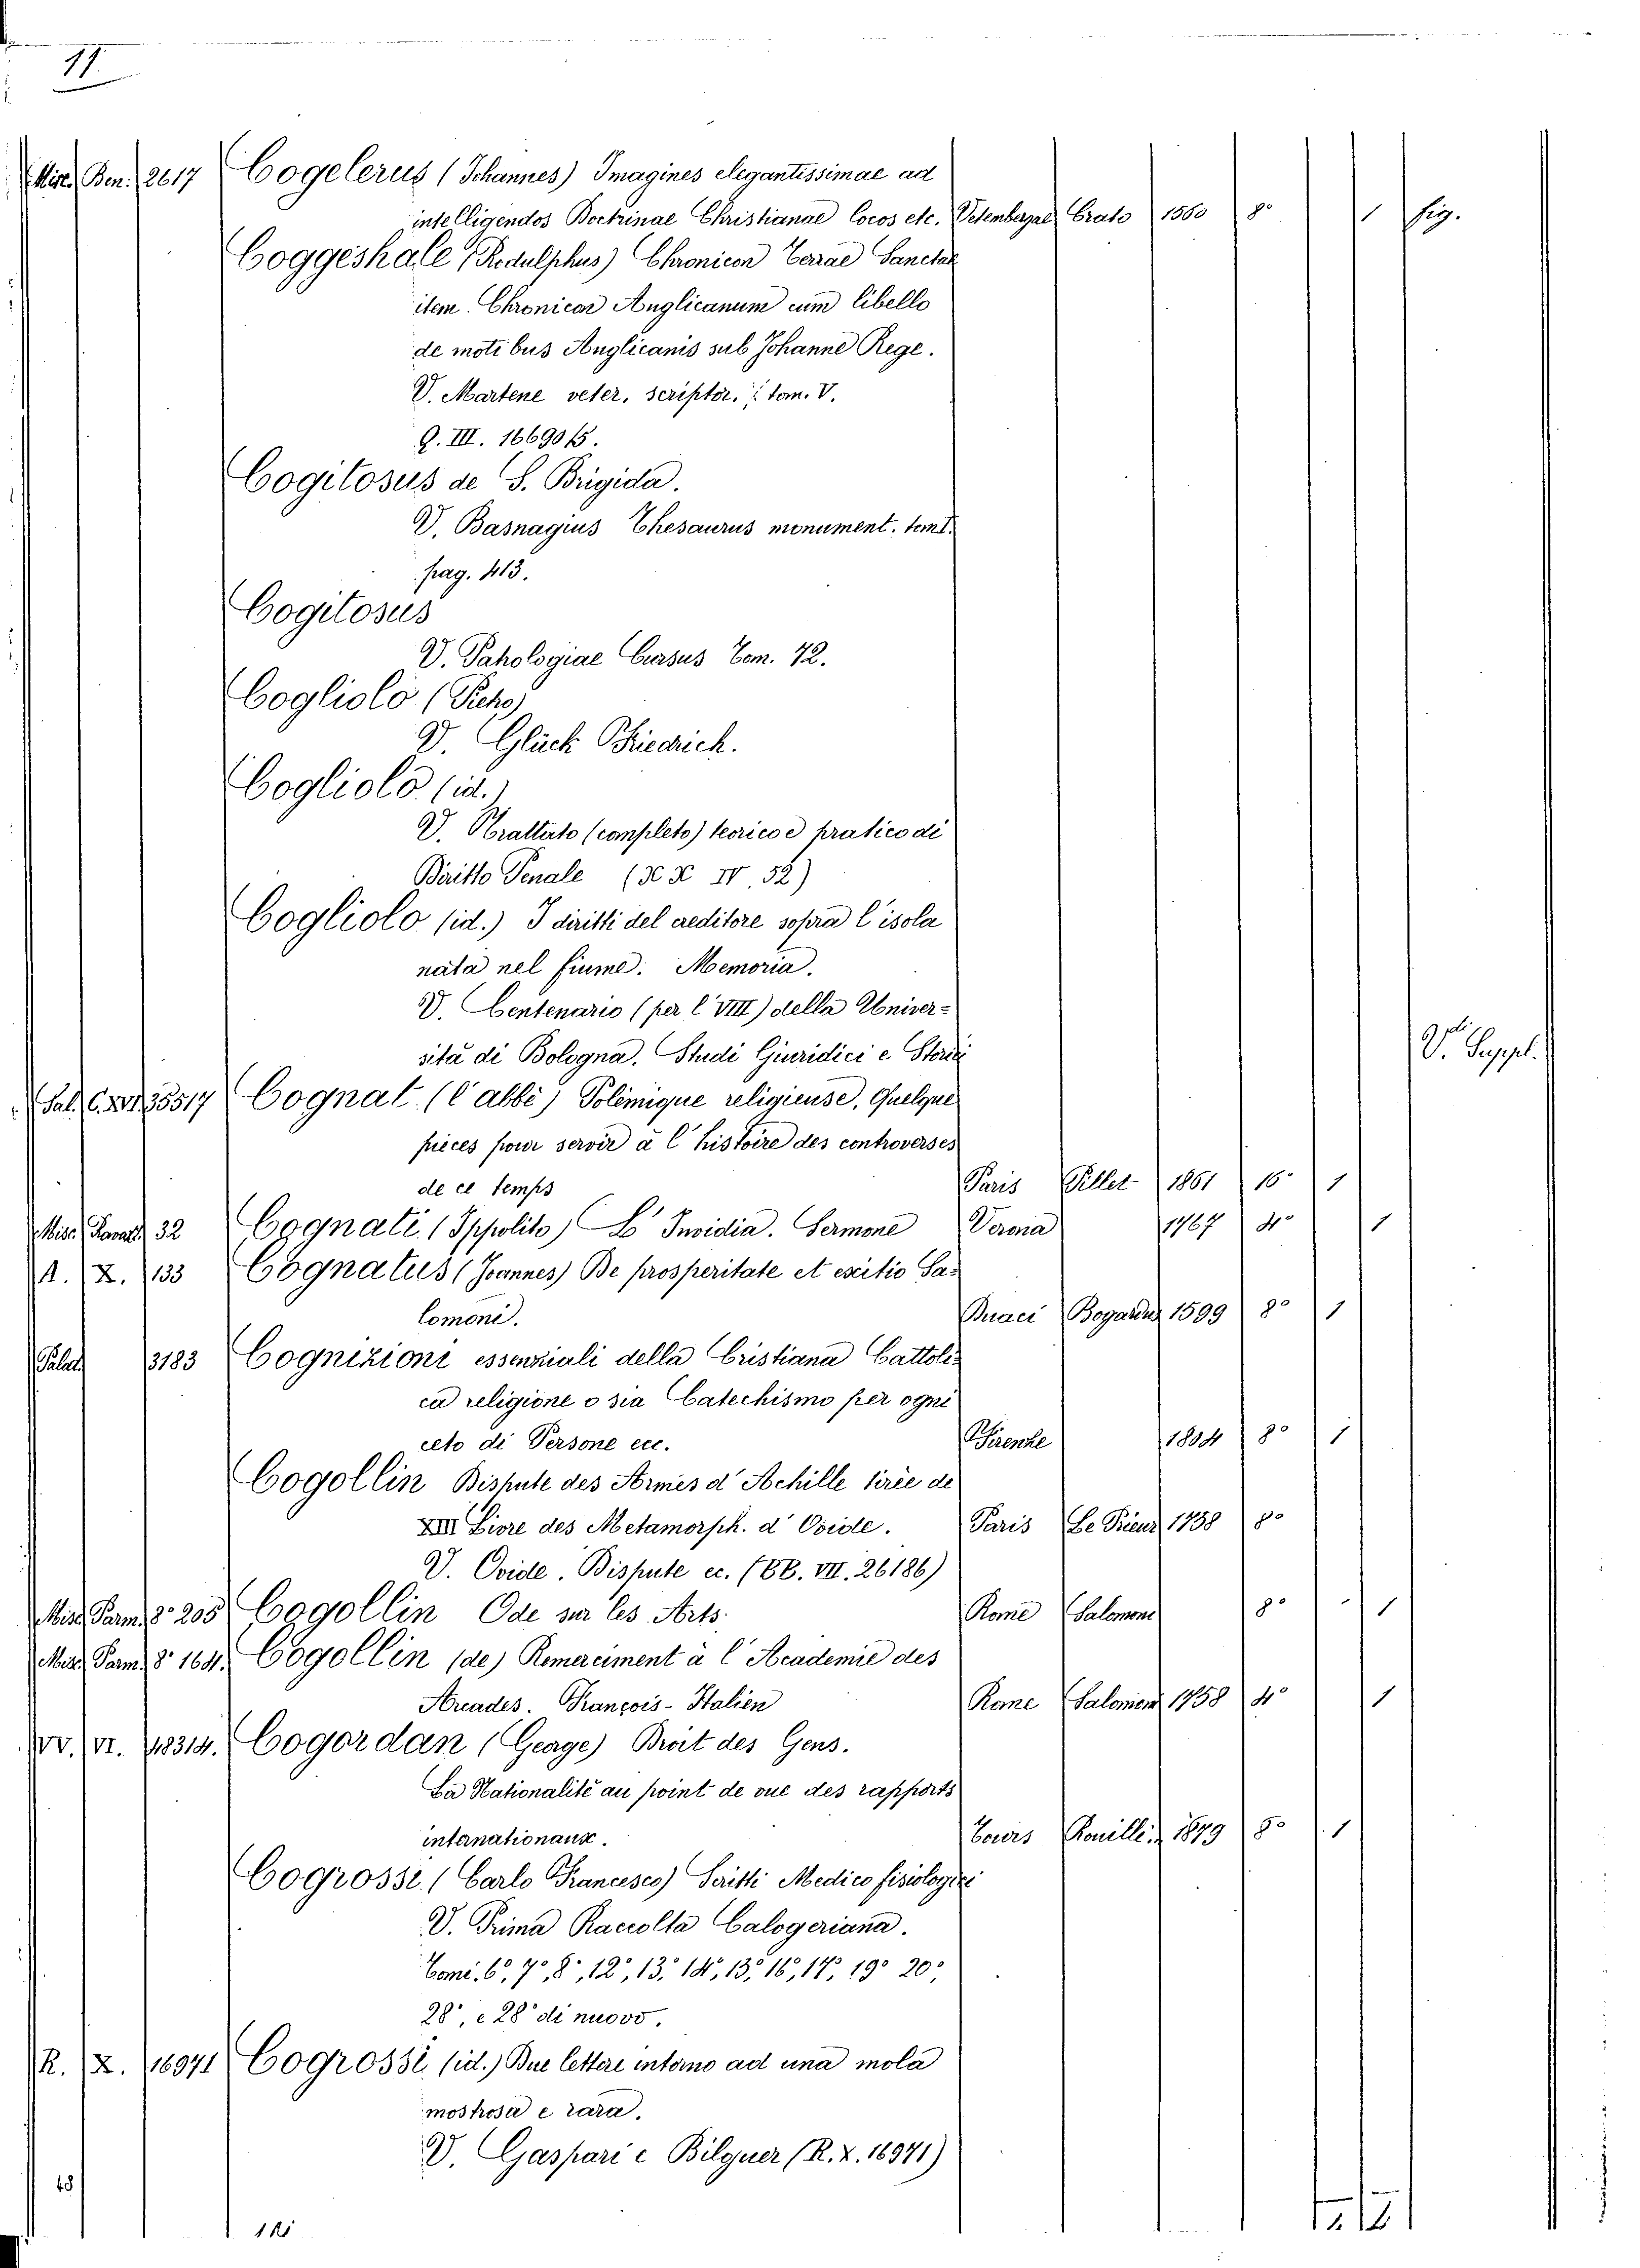 11.
Misc. Ben. 2617 Cogelerus (Johannes) Imagines elegantissimae ad
intelligendos Doctrinae Christianae locos etc. Vitembergae Crato 1560 8º 1 fig.
Coggeshale (Radulphus) Chronicon Terrae Sanctae
item. Chronicon Anglicanum cum libello
de motibus Anglicanis sub Johanne Rege.
V. Martene veter. scriptor. tom. V.
Q. III. 16690/5.
Cogitosus de S. Brigida.
V. Basnagius Thesaurus monument. tom I.
pag. 413.
Cogitosus
V. Patrologiae Cursus Tom. 72.
Cogliolo (Pietro)
V. Glück Friedrich.
Cogliolo (id.)
V. Trattato (completo) teorico e pratico di
Diritto Penale (XX IV. 52)
Cogliolo (id.) I diritti del creditore sopra l'isola
nata nel fiume. Memoria.
V. Centenario (per l'VIII) della Univer=
sità di Bologna. Studi Giuridici e Storici
V. Suppl.
Sal. C. XVI 35517 Cognat (l'abbé) Polémique religieuse, Quelque
pièces pour servir à l'histoire des controverses
de ce temps Paris Pillet 1861 16º 1
Misc. Ravach 32 Cognati (Ippolito) L'Invidia. Sermone Verona 1767 4º 1
A. X. 133 Cognatus (Joannes) De prosperitate et exitio Sa=
lomoni. Duaci Bogardus 1599 8º 1
Palat. 3183 Cognizioni essenziali della Cristiana Cattoli=
ca religione o sia Catechismo per ogni
ceto di Persone ecc. Firenze 1804 8º 1
Cogollin Dispute des Armes d'Achille tirée de
XIII Livre des Metamorph. d'Ovide. Paris Le Prieur 1738 8º
V. Ovide. Dispute ec. (BB. VII. 26186)
Misc. Parm. 8º 205 Cogollin Ode sur les Arts. Rome Salomoni 8º 1
Misc. Parm. 8º 164. Cogollin (de) Remerciment à l'Academie des
Arcades. François-Italien Rome Salomoni 1758 4º 1
VV. VI. 48314. Cogordan (George) Droit des Gens.
La Nationalité au point de vue des rapports
internationaux. Tours Rouillé 1879 8º 1
Cogrossi (Carlo Francesco) Scritti Medico fisiologici
V. Prima Raccolta Calogeriana.
Tomi. 6º, 7º, 8º, 12º, 13º, 14º, 15º, 16º, 17º, 19º 20º,
28º, e 28º di nuovo.
R. X. 16971 Cogrossi (id.) Due lettere intorno ad una mola
mostrosa e rara.
V. Gaspari e Bilguer (R. X. 16971)